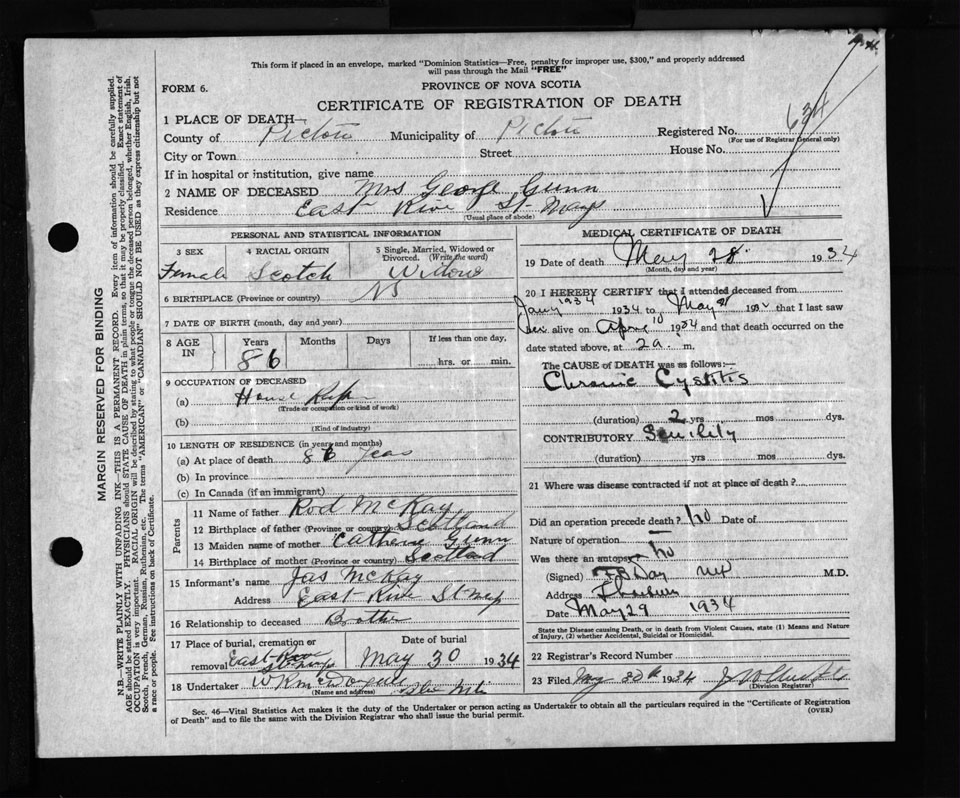 This form if placed in an envelope, marked "Dominion Statistics—Free, penalty for improper use, $300," and properly addressed
will pass through the Mail "FREE"
FORM 6.
PROVINCE OF NOVA SCOTIA
CERTIFICATE OF REGISTRATION OF DEATH
1 PLACE OF DEATH—
County of Pictou Municipality of Pictou Registered No. 634
(For use of Registrar General only)
City or Town Street House No.
If in hospital or institution, give name
2 NAME OF DECEASED Mrs George Gunn
Residence East River St. Marys
(Usual place of abode)
PERSONAL AND STATISTICAL INFORMATION
3 SEX 4 RACIAL ORIGIN 5 Single, Married, Widowed or
Divorced. (Write the word)
Female Scotch Widow
6 BIRTHPLACE (Province or country) NS
7 DATE OF BIRTH (month, day and year)
8 AGE IN Years Months Days If less than one day,
86 hrs. or min.
9 OCCUPATION OF DECEASED
(a) House
(Trade or occupation or kind of work)
(b)
(Kind of industry)
10 LENGTH OF RESIDENCE (in years and months)
(a) At place of death 86 years
(b) In province
(c) In Canada (if an immigrant)
Parents
11 Name of father Rod McKay
12 Birthplace of father (Province or country) Scotland
13 Maiden name of mother Cathern Gunn
14 Birthplace of mother (Province or country) Scotland
15 Informant's name Jas McKay
Address East River St Marys
16 Relationship to deceased Brother
17 Place of burial, cremation or Date of burial
removal East River St Marys May 30 1934
18 Undertaker W R McDonald
(Name and address)
MEDICAL CERTIFICATE OF DEATH
19 Date of death May 28. 1934
(Month, day and year)
20 I HEREBY CERTIFY that I attended deceased from
Jany 1934 1934 to May 28 193 that I last saw
her alive on April 10 1934 and that death occurred on the
date stated above, at 2 a. m.
The CAUSE OF DEATH was as follows:—
Chronic Cystitis
(duration) 2 yrs mos dys.
CONTRIBUTORY Senility
(duration) yrs mos dys.
21 Where was disease contracted if not at place of death?
Did an operation precede death? no Date of
Nature of operation
Was there an autopsy no
(Signed) Day MD M.D.
Address Thorburn
Date May 29 1934
State the Disease causing Death, or in Death from Violent Causes, state (1) Means and Nature
of Injury, (2) whether Accidental, Suicidal or Homicidal.
22 Registrar's Record Number
23 Filed May 30th 1934
(Division Registrar)
Sec. 46—Vital Statistics Act makes it the duty of the Undertaker or person acting as Undertaker to obtain all the particulars required in the "Certificate of Registration
of Death" and to file the same with the Division Registrar who shall issue the burial permit.
(OVER)
MARGIN RESERVED FOR BINDING
N.B.—WRITE PLAINLY WITH UNFADING INK—THIS IS A PERMANENT RECORD. Every item of information should be carefully supplied.
AGE should be stated EXACTLY. PHYSICIANS should STATE CAUSE OF DEATH in plain terms, so that it may be properly classified. Exact statement of
OCCUPATION is very important. RACIAL ORIGIN will be described by stating to what people or tongue the deceased person belonged, whether English, Irish,
Scotch, French, German, Russian, Ruthenian, etc. The terms "AMERICAN" or "CANADIAN" SHOULD NOT BE USED as they express citizenship but not
a race or people. See instructions on back of Certificate.